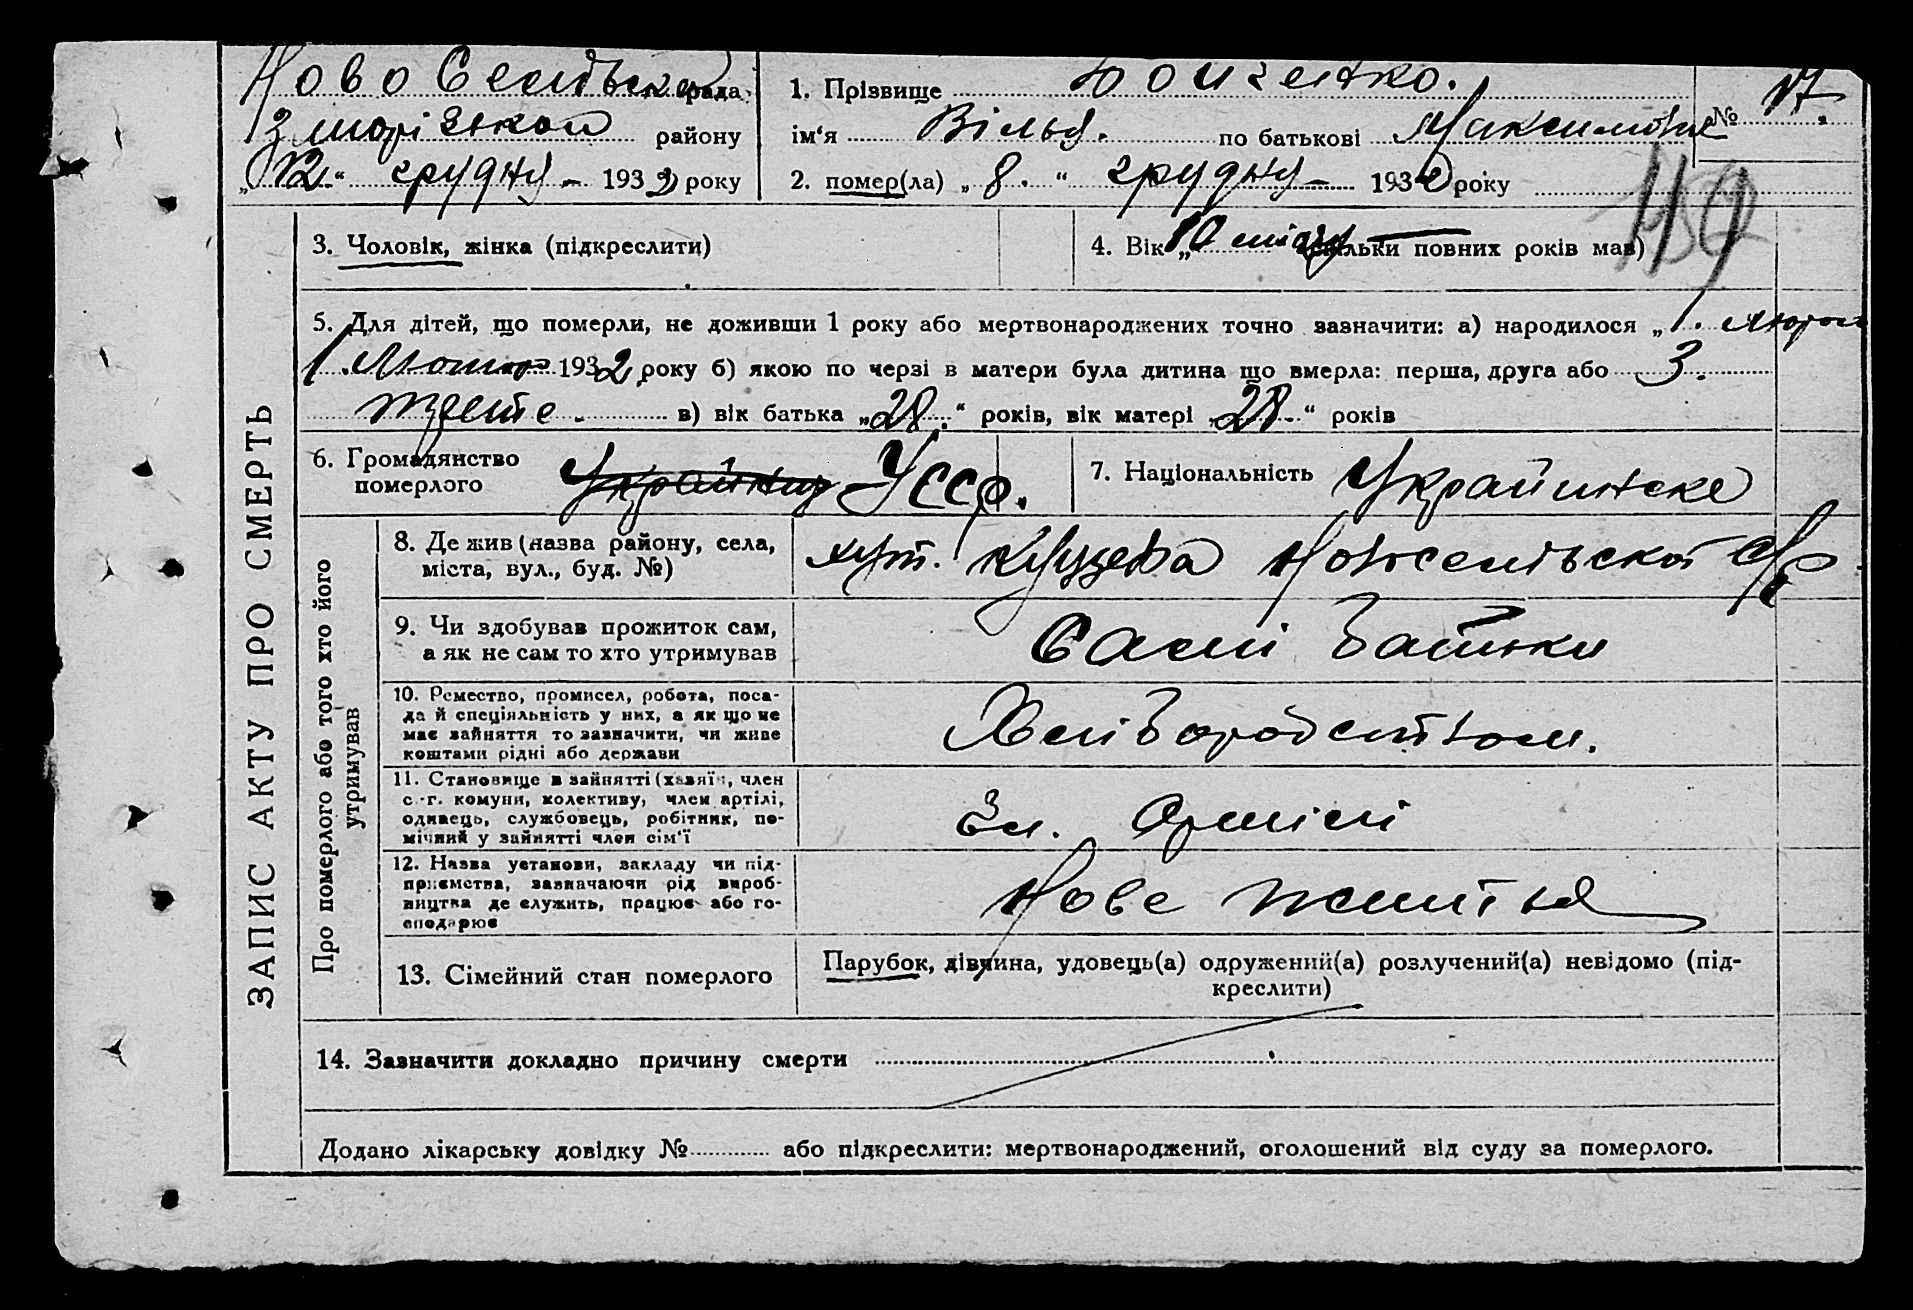 Ново Селівської рада
Зміївской району
„12“ грудня - 1932 року
1. Прізвище Бойченко.
ім‘я Вілья. по батькові Максимович № 17.
2. помер(ла) „8.“ грудня - 1932 року
ЗАПИС АКТУ ПРО СМЕРТЬ
3. Чоловік, жінка (підкреслити)
4. Вік „10 місяц (скільки повних років мав)
5. Для дітей, що померли, не доживши 1 року або мертвонароджених точно зазначити: а) народилося „1. лютого
1. Лютого 1932 року б) якою по черзі в матери була дитина що вмерла: перша, друга або 3.
третє. в) вік батька „28.“ років, вік матері „28“ років
6. Громадянство
померлого Українец УССР.
7. Національність Украйинске
Про померлого або того хто його
утримував
8. Де жив (назва району, села,
міста, вул., буд. №)
хут. Куцева Новоселівської С/р
9. Чи здобував прожиток сам,
а як не сам то хто утримував
Самі батьки
10. Ремество, промисел, робота, поса-
да й спеціяльність у них, а як що не
має зайняття то зазначити, чи живе
коштами рідні або держави
Хліборобством.
11. Становище в зайнятті (хазяїн, член
с.-г. комуни, колективу, член артілі,
одинець, службовець, робітник, по-
мічний у зайнятті член сім‘ї
Чл. Артілі
12. Назва установи, закладу чи під-
приємства, зазначаючи рід вироб-
ництва де служить, працює або го-
сподарює
Нове життья
13. Сімейний стан померлого
Парубок, дівчина, удовець(а) одружений(а) розлучений(а) невідомо (під-
креслити)
14. Зазначити докладно причину смерти
Додано лікарську довідку № або підкреслити: мертвонароджений, оголошений від суду за померлого.